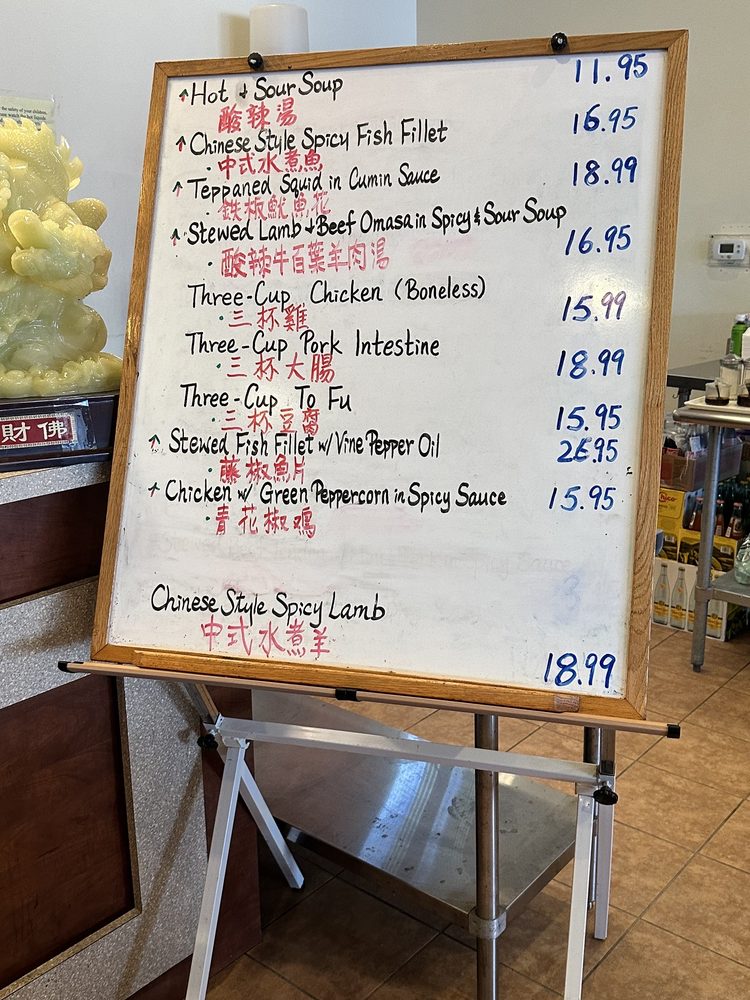 Hot & Sour Soup 11.95
酸辣湯
Chinese Style Spicy Fish Fillet 16.95
中式水煮魚
Teppaned Squid in Cumin Sauce 18.99
鉄板魷魚花
Stewed Lamb & Beef Omasa in Spicy & Sour Soup 16.95
酸辣牛百葉羊肉湯
Three-Cup Chicken (Boneless) 15.99
三杯雞
Three-Cup Pork Intestine 18.99
三杯大腸
Three-Cup To Fu 15.95
三杯豆腐
Stewed Fish Fillet w/ Vine Pepper Oil 26.95
藤椒魚片
Chicken w/ Green Peppercorn in Spicy Sauce 15.95
青花椒鸡
Chinese Style Spicy Lamb
中式水煮羊
18.99
財佛